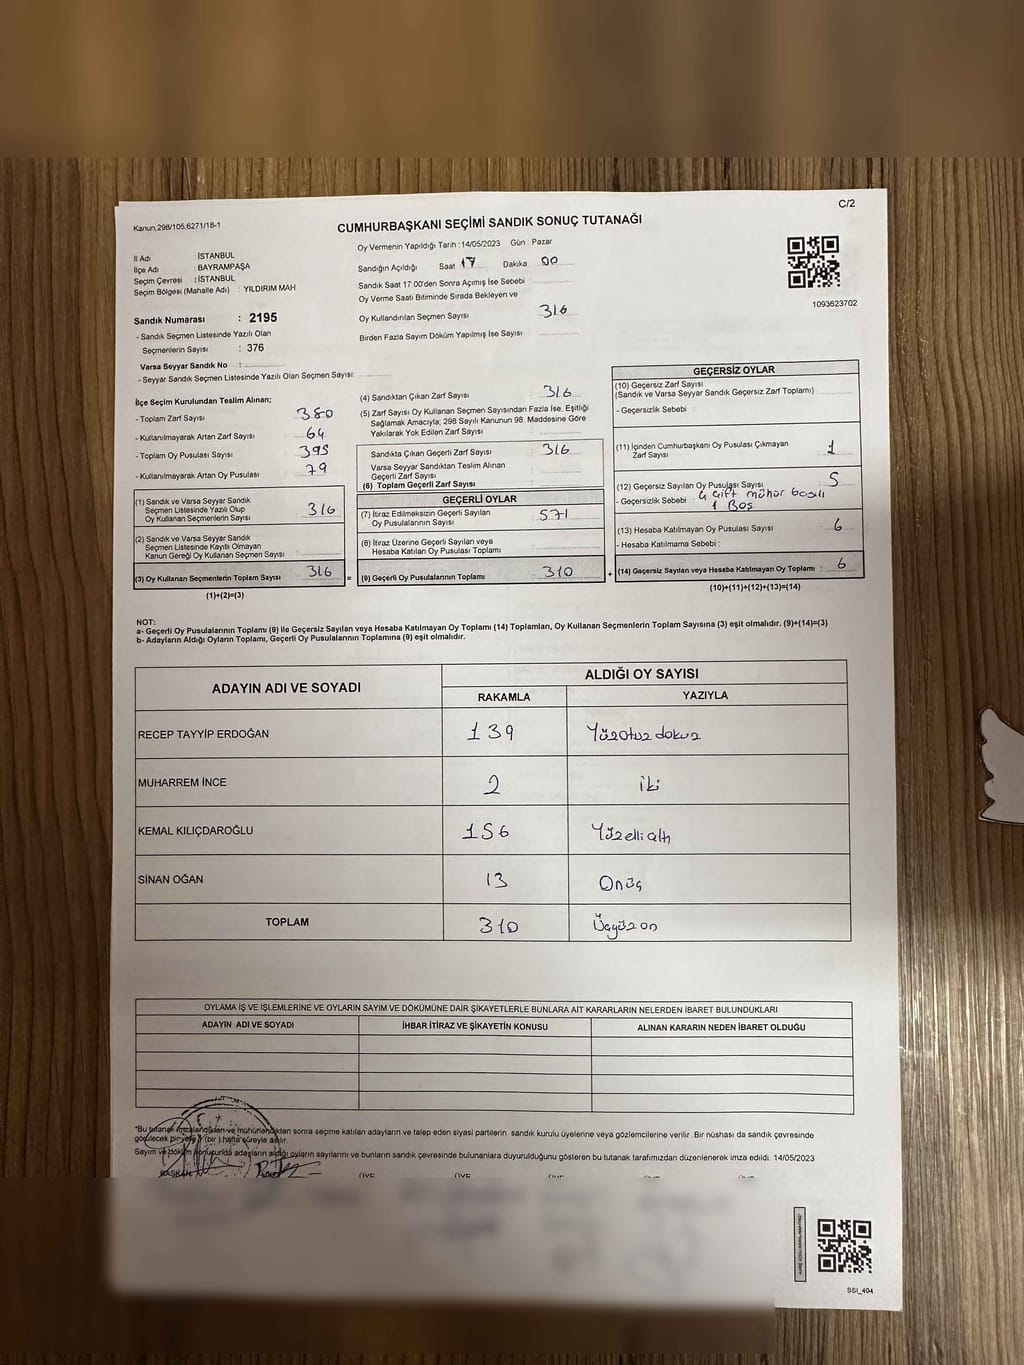 C/2
Kanun,298/105,6271/18-1
CUMHURBAŞKANI SEÇİMİ SANDIK SONUÇ TUTANAĞI
Oy Vermenin Yapıldığı Tarih :14/05/2023 Gün : Pazar
İl Adı : İSTANBUL
İlçe Adı : BAYRAMPAŞA
Seçim Çevresi : İSTANBUL
Seçim Bölgesi (Mahalle Adı) : YILDIRIM MAH
Sandık Numarası : 2195
- Sandık Seçmen Listesinde Yazılı Olan
Seçmenlerin Sayısı : 376
Varsa Seyyar Sandık No :
- Seyyar Sandık Seçmen Listesinde Yazılı Olan Seçmen Sayısı:
Sandığın Açıldığı Saat 17 Dakika 00
Sandık Saat 17.00'den Sonra Açımış İse Sebebi
Oy Verme Saati Bitiminde Sırada Bekleyen ve
Oy Kullandırılan Seçmen Sayısı 316
Birden Fazla Sayım Döküm Yapılmış İse Sayısı
1093623702
İlçe Seçim Kurulundan Teslim Alınan;
- Toplam Zarf Sayısı 380
- Kullanılmayarak Artan Zarf Sayısı 64
- Toplam Oy Pusulası Sayısı 395
- Kullanılmayarak Artan Oy Pusulası 79
(1) Sandık ve Varsa Seyyar Sandık
Seçmen Listesinde Yazılı Olup
Oy Kullanan Seçmenlerin Sayısı 316
(2) Sandık ve Varsa Seyyar Sandık
Seçmen Listesinde Kayıtlı Olmayan
Kanun Gereği Oy Kullanan Seçmen Sayısı :
(3) Oy Kullanan Seçmenlerin Toplam Sayısı 316
(1)+(2)=(3)
(4) Sandıktan Çıkan Zarf Sayısı 316
(5) Zarf Sayısı Oy Kullanan Seçmen Sayısından Fazla İse, Eşitliği
Sağlamak Amacıyla; 298 Sayılı Kanunun 98. Maddesine Göre
Yakılarak Yok Edilen Zarf Sayısı
Sandıkta Çıkan Geçerli Zarf Sayısı 316
Varsa Seyyar Sandıktan Teslim Alınan
Geçerli Zarf Sayısı
(6) Toplam Geçerli Zarf Sayısı
GEÇERLİ OYLAR
(7) İtiraz Edilmeksizin Geçerli Sayılan
Oy Pusulalarının Sayısı : 571
(8) İtiraz Üzerine Geçerli Sayılan veya
Hesaba Katılan Oy Pusulası Toplamı
=
(9) Geçerli Oy Pusulalarının Toplamı : 310
+
GEÇERSİZ OYLAR
(10) Geçersiz Zarf Sayısı
(Sandık ve Varsa Seyyar Sandık Geçersiz Zarf Toplamı)
- Geçersizlik Sebebi :
(11) İçinden Cumhurbaşkanı Oy Pusulası Çıkmayan
Zarf Sayısı 1
(12) Geçersiz Sayılan Oy Pusulası Sayısı 5
- Geçersizlik Sebebi : 4 çift mühür basılı
1 Boş
(13) Hesaba Katılmayan Oy Pusulası Sayısı 6
- Hesaba Katılmama Sebebi :
(14) Geçersiz Sayılan veya Hesaba Katılmayan Oy Toplamı : 6
(10)+(11)+(12)+(13)=(14)
NOT:
a- Geçerli Oy Pusulalarının Toplamı (9) ile Geçersiz Sayılan veya Hesaba Katılmayan Oy Toplamı (14) Toplamları, Oy Kullanan Seçmenlerin Toplam Sayısına (3) eşit olmalıdır. (9)+(14)=(3)
b- Adayların Aldığı Oyların Toplamı, Geçerli Oy Pusulalarının Toplamına (9) eşit olmalıdır.
ADAYIN ADI VE SOYADI
ALDIĞI OY SAYISI
RAKAMLA YAZIYLA
RECEP TAYYİP ERDOĞAN 139 Yüzotuzdokuz
MUHARREM İNCE 2 iki
KEMAL KILIÇDAROĞLU 156 Yüzellialtı
SİNAN OĞAN 13 Onüç
TOPLAM 310 Üçyüzon
OYLAMA İŞ VE İŞLEMLERİNE VE OYLARIN SAYIM VE DÖKÜMÜNE DAİR ŞİKAYETLERLE BUNLARA AİT KARARLARIN NELERDEN İBARET BULUNDUKLARI
ADAYIN ADI VE SOYADI İHBAR İTİRAZ VE ŞİKAYETİN KONUSU ALINAN KARARIN NEDEN İBARET OLDUĞU
*Bu tutanak imzalandıktan ve mühürlendikten sonra seçime katılan adayların ve talep eden siyasi partilerin sandık kurulu üyelerine veya gözlemcilerine verilir. Bir nüshası da sandık çevresinde
görülecek bir yere 1 (bir) hafta süreyle asılır.
Sayım ve döküm sonucunda adayların aldığı oyların sayılarını ve bunların sandık çevresinde bulunanlara duyurulduğunu gösteren bu tutanak tarafımızdan düzenlenerek imza edildi. 14/05/2023
BAŞKAN ÜYE ÜYE ÜYE ÜYE ÜYE
SSI_404